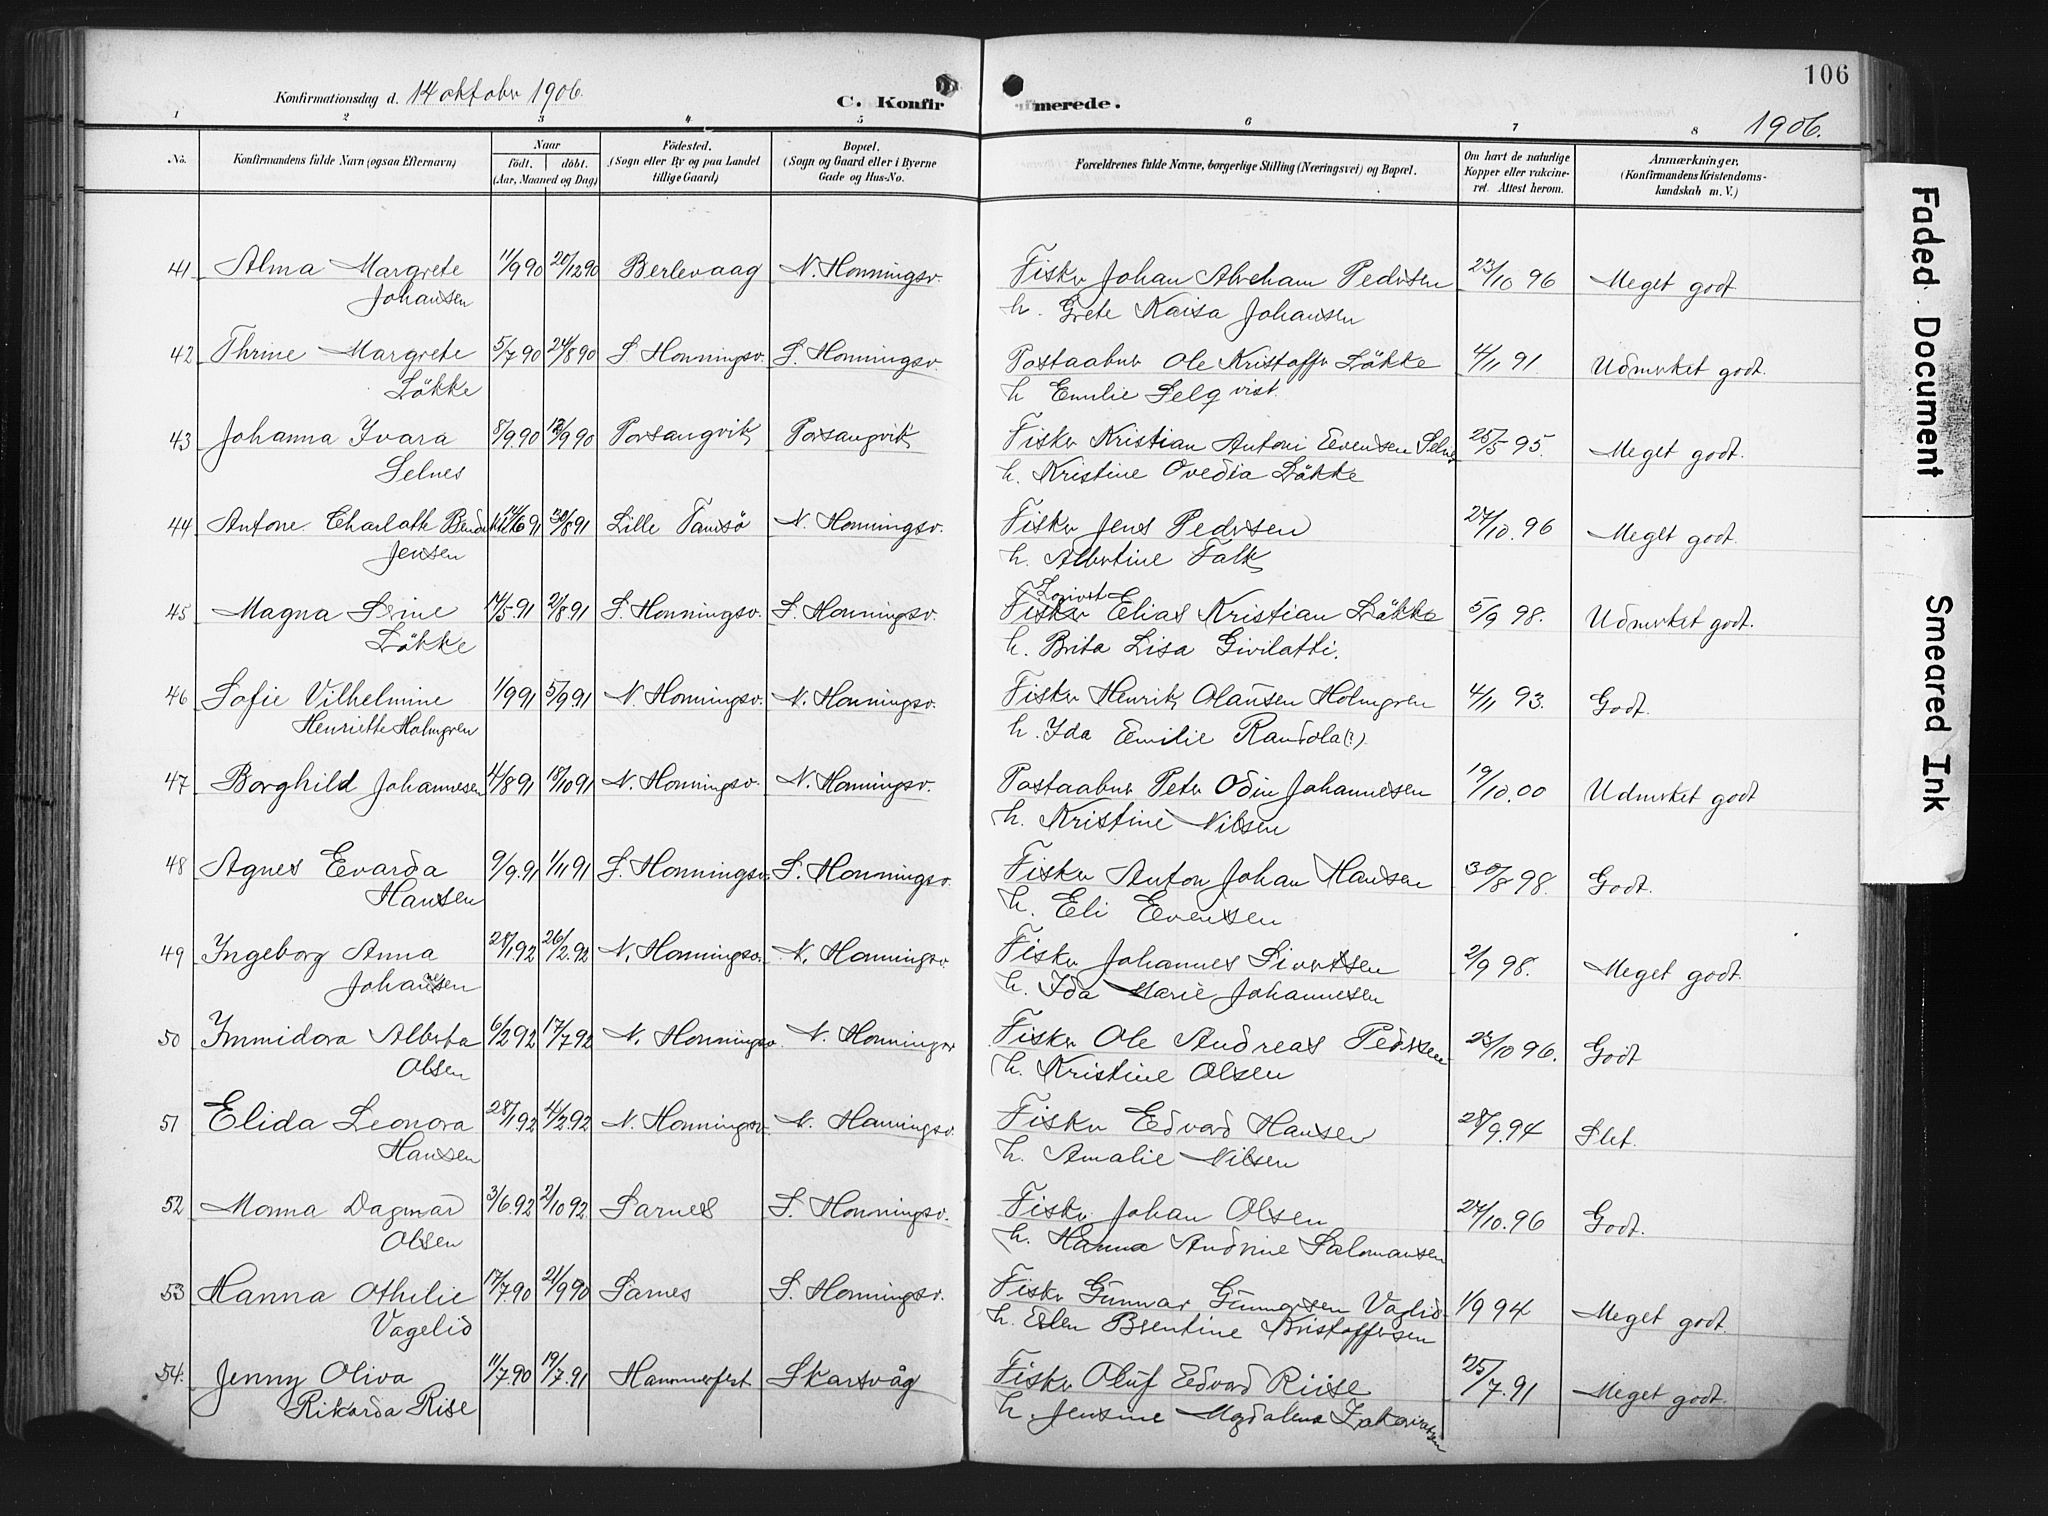 106
Konfirmationsdag d. 14 oktober 1906.
C. Konfirmerede.
1906.
1 2 3 4 5 6 7 8
No. Konfirmandens fulde Navn (ogsaa Efternavn) Naar født. døbt. (Aar, Maaned og Dag) Fødested. (Sogn eller By og paa Landet tillige Gaard) Bopæl. (Sogn og Gaard eller i Byerne Gade og Hus-No. Forældrenes fulde Navne, borgerlige Stilling (Næringsvei) og Bopæl. Om havt de naturlige Kopper eller vakcineret. Attest herom. Anmærkninger. (Konfirmandens Kristendomskundskab m. V.)
41 Alma Margrete 11/9 90 20/12 90 Berlevaag N. Honningsv. Fisker Johan Abraham Pedersen 23/10 96 Meget godt
Johansen h. Grete Kaisa Johansen
42 Thrine Margrete 5/7 90 24/8 90 S Honningsv. S. Honningsv. Postaabner Ole Kristoffer Løkke 4/11 91 Udmerket godt.
Løkke h Emilie Selqvist.
43 Johanna Ivara 8/9 90 12/9 90 Porsangvik Porsangvik Fisker Kristian Antoni Evensen Selnes 25/5 95. Meget godt.
Selnes h. Kristine Ovedia Løkke
44 Antone Charlotte 14/6 91 30/8 91 Lille Tamsø N. Honningsv. Fisker Jens Pedersen 27/10.96 Meget godt.
Jensen h. Albertine Falk
45 Magna 14/5.91 2/8 91 S. Honningsv. S. Honningsv. Fisker Elias Kristian Løkke 5/9 98. Udmerket godt.
Løkke h. Brita Lisa Givilatti.
46 Sofie Vilhelmine 1/9 91 5/9 91 N. Honningsv. N. Honningsv. Fisker Henrik Olausen Holmgren 4/11 93. Godt.
Henriette Holmgren h. Ida Emilie Randola(?).
47 Borghild Johannesen 4/8 91 18/10 91 N. Honningsv. N. Honningsv. Postaabner Peter Odin Johannesen 19/10.00 Udmerket godt
h. Kristine Nilsen
48 Agnes Evarda 9/9.91 1/11 91 S. Honningsv. S. Honningsv. Fisker Anton Johan Hansen 30/8 98. Godt.
Hansen h. Eli Evensen
49 Ingeborg Anna 28/1 92 26/2.92 N. Honningsv. N. Honningsv. Fisker Johannes Sivertsen 2/9 98. Meget godt.
Johansen h. Ida Marie Johannesen
50 Immidora Alberta 6/2 92 17/7 92 N. Honningsv. N. Honningsv Fisker Ole Andreas Pedersen 23/10 96. Godt
Olsen h. Kristine Olsen
51 Elida Leonora 28/1 92 4/2 92 N. Honningsv. N. Honningsv. Fisker Edvard Hansen 28/9.94 Slet.
Hansen h. Amalie Nilsen
52 Monna Dagmar 3/6.92 2/10 92 Sarnes S. Honningsv. Fisker Johan Olsen 27/10.96 Godt.
Olsen h. Hanna Andrine Salomonsen
53 Hanna Othelie 17/7.90 21/9 90 Sarnes S. Honningsv. Fisker Gunnar Gunnarsen Vaglid 1/9 94 Meget godt.
Vagelid h. Elen Brentine Kristoffersen
54. Jenny Oliva 11/7.90 19/7.91 Hammerfest Skarsvåg Fisker Oluf Edvard Riise 25/7.91 Meget godt.
Rikarda Riise h. Jensine Magdalena Zakariassen
Faded Document
Smeared Ink